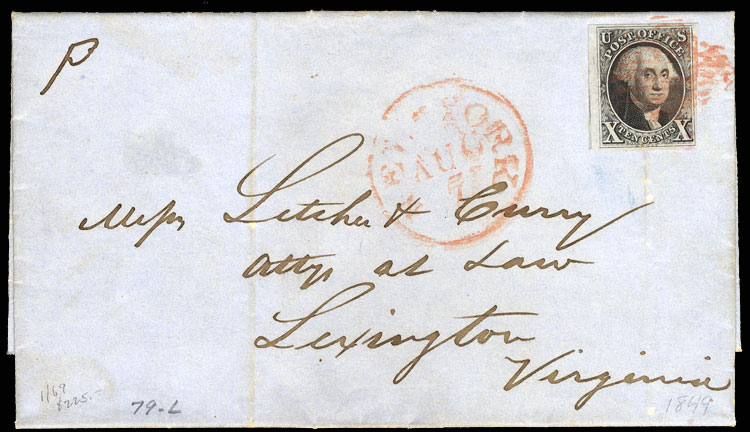 P
U S
POST OFFICE
X TEN CENTS X
NEW YORK
AUG
7
Messrs Letcher & Curry
Attys at Law
Lexington
Virginia
1/69
$225.-
79-L
1849